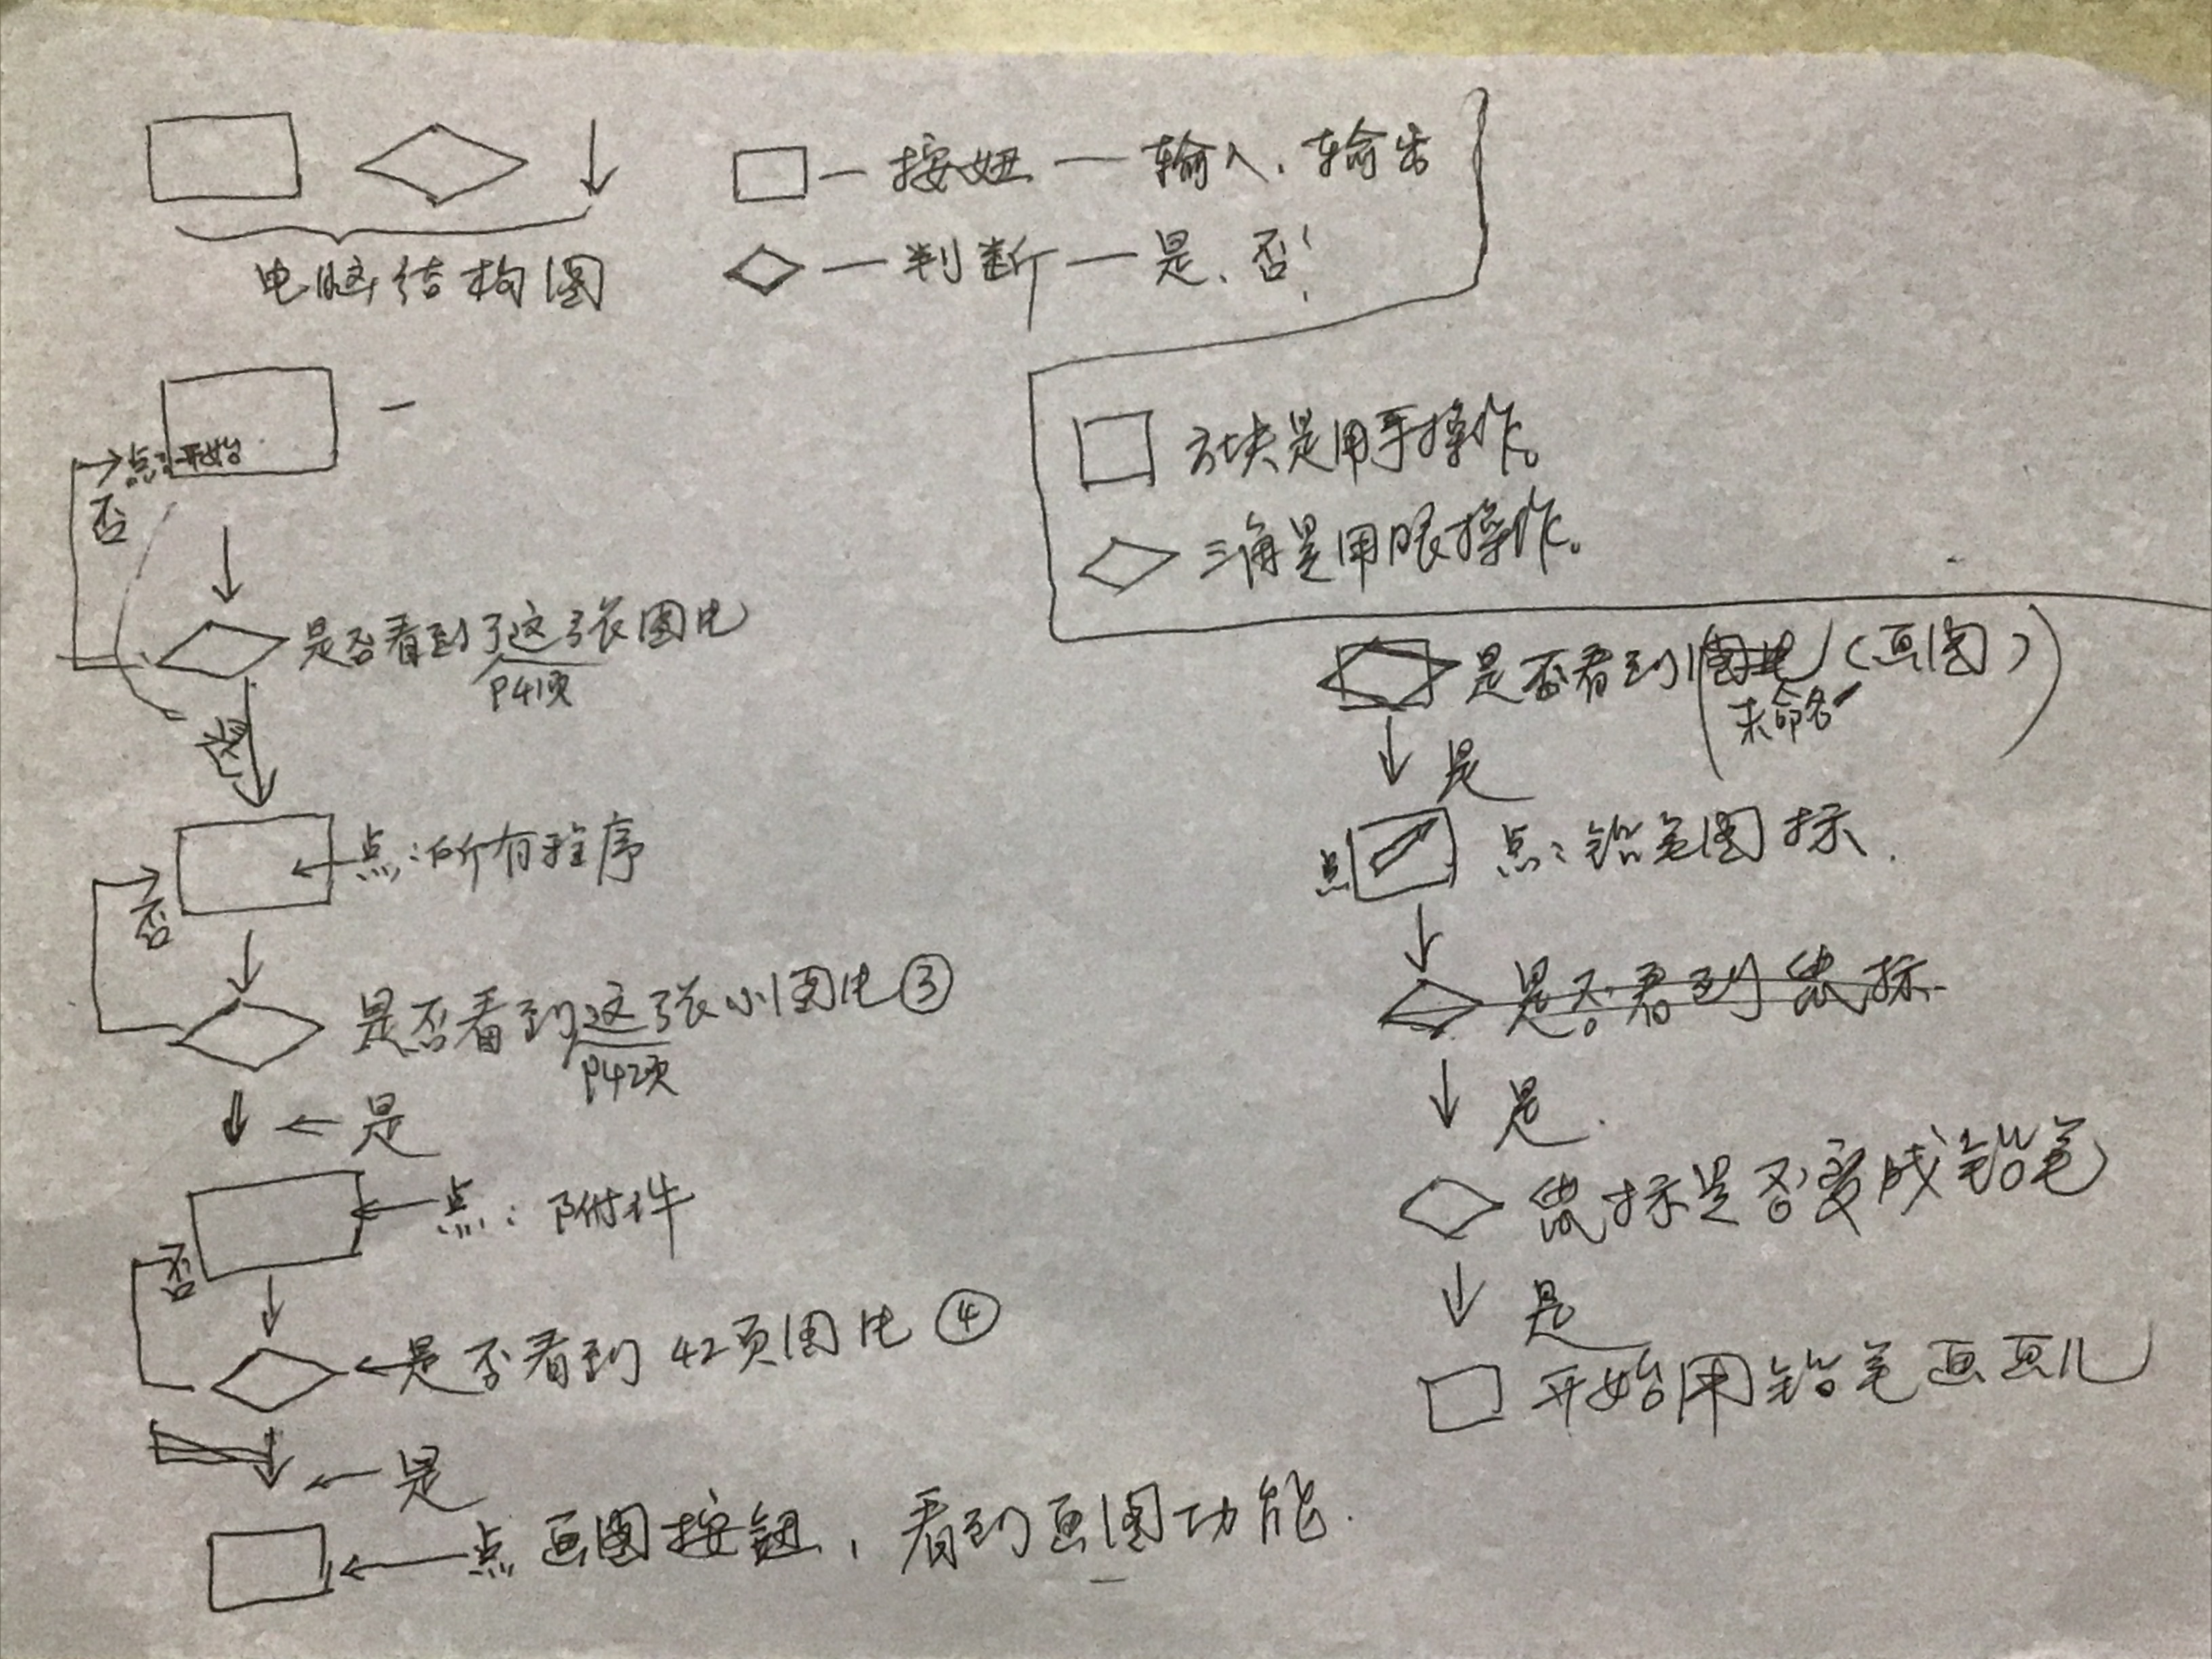 按妞 — 输入、输出
电脑结构图
判断 — 是、否!
方块是用手操作。
点:开始
否
三角是用眼操作。
是否看到了这张图片
P41页
点:所有程序
否
是否看到这张小图片③
P42页
是
点:附件
否
是否看到42页图片④
是
点画图按钮,看到画图功能.
是否看到(画图)
未命名
是
点
点:铅笔图标.
是否看到鼠标
是.
鼠标是否变成铅笔
是
开始用铅笔画画儿